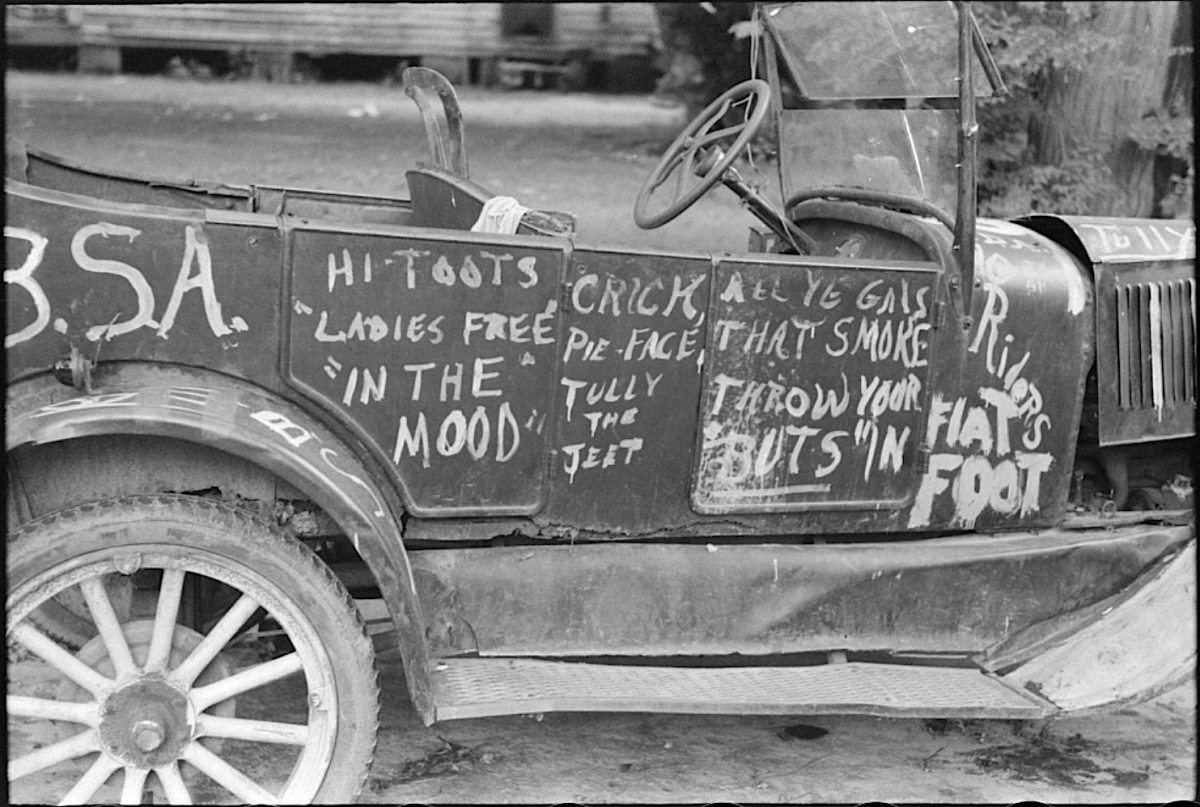 B.S.A.
HI-TOOTS
"LADIES FREE"
"IN THE"
MOOD"
CRICK,
PIE-FACE,
TULLY
THE
JEET
ALL YE GALS
THAT SMOKE
THROW YOUR
"BUTS" IN
Riders
FLAT
FOOT
TULLY